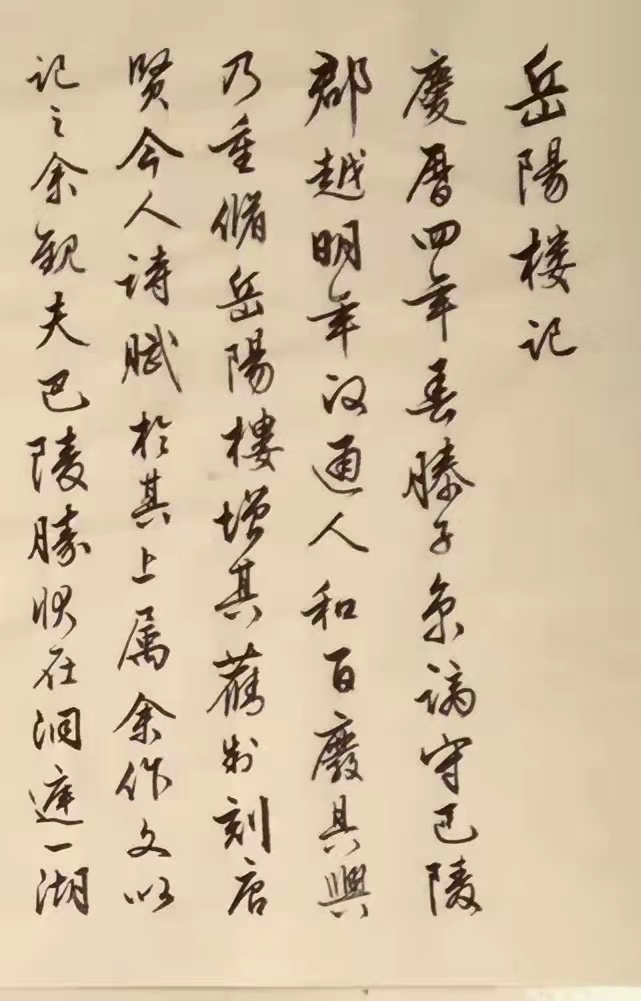 岳陽楼记
慶曆四年春滕子京谪守巴陵
郡越明年政通人和百廢具興
乃重脩岳陽樓增其舊制刻唐
贤今人诗赋於其上属余作文以
记之余观夫巴陵勝状在洞庭一湖